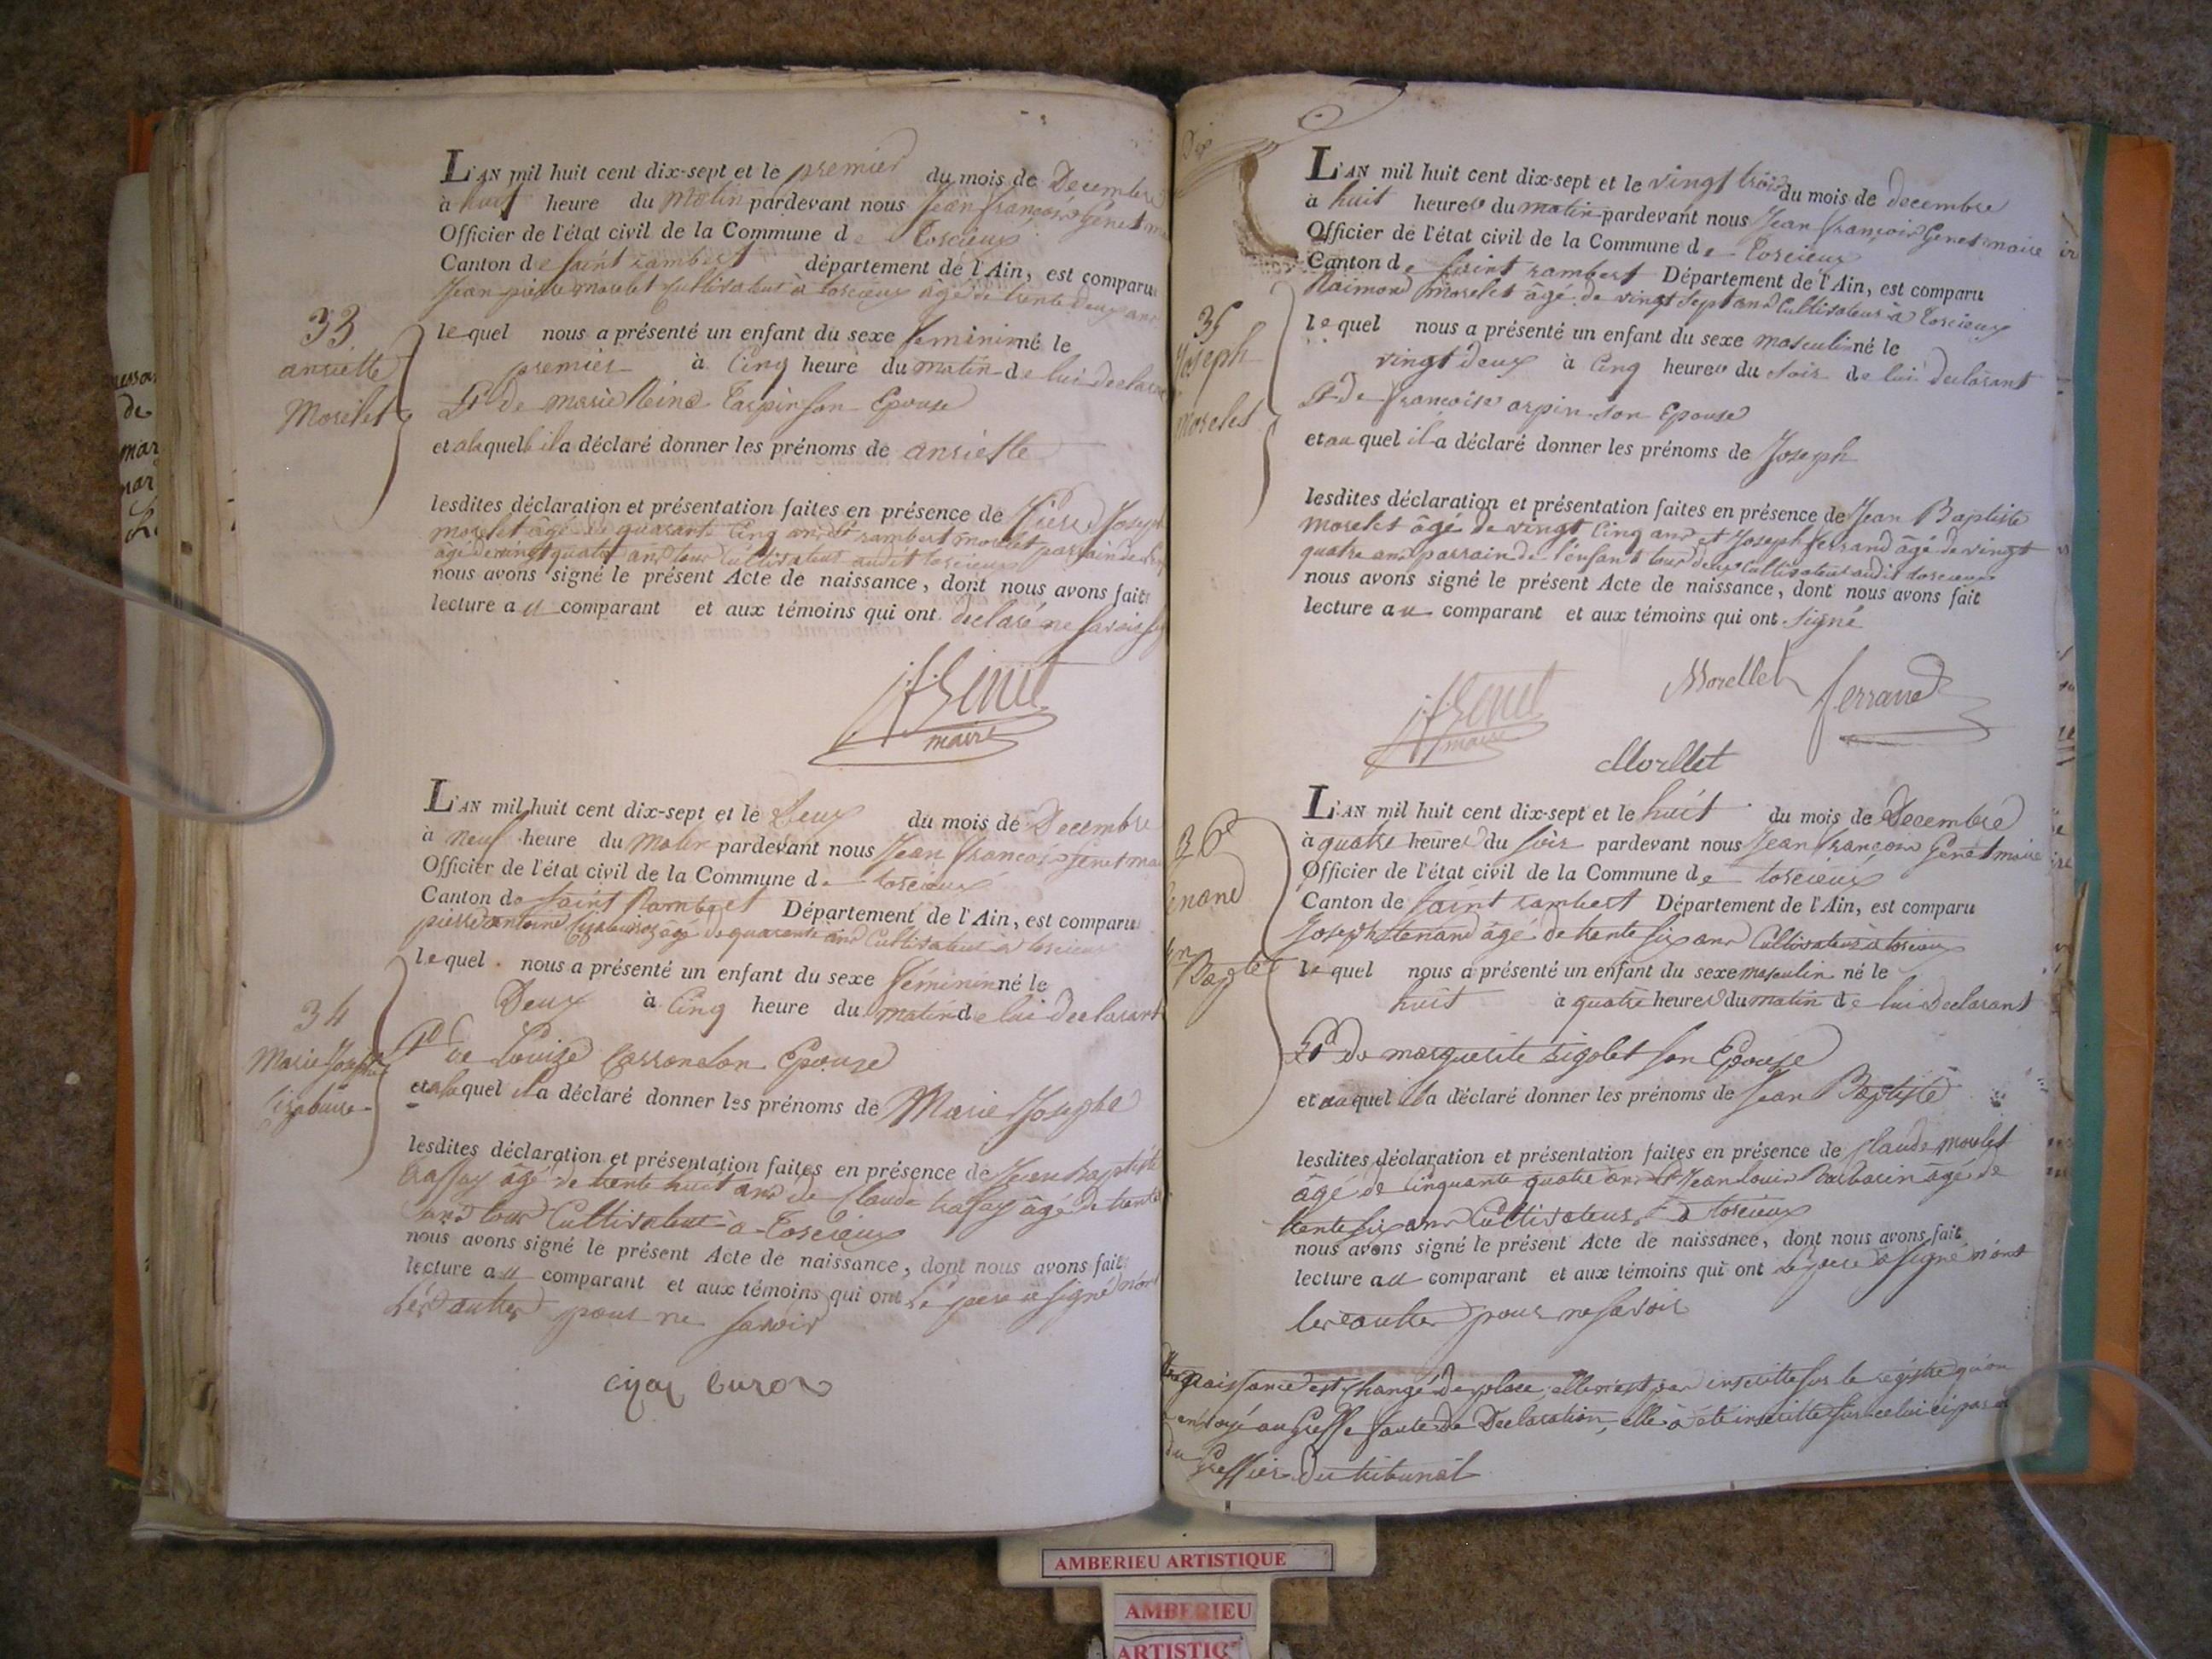 L'AN mil huit cent dix-sept et le premier du mois de Decembre
à huit heure du Matin pardevant nous Jean françois Génet
Officier de l'état civil de la Commune de torcieux
Canton de saint rambert département de l'Ain, est comparu
Jean pierre morelet Cultivateur à torcieux âgé de trente deux ans
33
ansiette
Morelet
lequel nous a présenté un enfant du sexe feminin né le
premier à Cinq heure du matin de lui declarant
Et de marie Reine Tarpin son Epouse
et alaquelle il a déclaré donner les prénoms de ansiette
lesdites déclaration et présentation faites en présence de Joseph
morelet âgé de quarante Cinq ans Et rambert morelet parrain de
âgé de vingt quatre ans tous Cultivateur audit torcieux
nous avons signé le présent Acte de naissance, dont nous avons fait
lecture au comparant et aux témoins qui ont declaré ne savoir
jf Genet
maire
L'AN mil huit cent dix-sept et le Deux du mois de Decembre
à neuf heure du Matin pardevant nous Jean françois Genet
Officier de l'état civil de la Commune de torcieux
Canton de saint Rambert Département de l'Ain, est comparu
pierre antoine âgé de quarante ans Cultivateur à torcieux
34
Marie Josephe
lequel nous a présenté un enfant du sexe féminin né le
Deux à Cinq heure du matin de lui declarant
Et de Louise son Epouse
et alaquel il a déclaré donner les prénoms de Marie Josephe
lesdites déclaration et présentation faites en présence de Jean Baptiste
âgé de trente huit ans de Claude âgé de trente
ans tous Cultivateur à Torcieux
nous avons signé le présent Acte de naissance, dont nous avons fait
lecture au comparant et aux témoins qui ont Le pere a signé non
les autres pour ne savoir
L'AN mil huit cent dix-sept et le vingt trois du mois de decembre
à huit heures du matin pardevant nous Jean françois Genet maire
Officier de l'état civil de la Commune de torcieux
Canton de saint rambert Département de l'Ain, est comparu
Raimond Morelet âgé de vingt sept ans Cultivateur à torcieux
35
Joseph
morelet
lequel nous a présenté un enfant du sexe masculin né le
vingt deux à Cinq heures du soir de lui declarant
Et de françoise arpin son Epouse
et au quel il a déclaré donner les prénoms de Joseph
lesdites déclaration et présentation faites en présence de Jean Baptiste
morelet âgé de vingt Cinq ans et Joseph ferrand âgé de vingt
quatre ans parrain de l'enfant tous deux Cultivateur audit torcieux
nous avons signé le présent Acte de naissance, dont nous avons fait
lecture au comparant et aux témoins qui ont signé
Morellet
ferrand
jf Genet
maire
Morellet
L'AN mil huit cent dix-sept et le huit du mois de Decembre
à quatre heures du soir pardevant nous Jean françois Genet maire
Officier de l'état civil de la Commune de torcieux
Canton de saint rambert Département de l'Ain, est comparu
Joseph âgé de trente six ans Cultivateur à torcieux
36
lequel nous a présenté un enfant du sexe masculin né le
huit à quatre heures du matin de lui declarant
Et de marguerite rigolet son Epouse
et au quel il a déclaré donner les prénoms de Jean Baptiste
lesdites déclaration et présentation faites en présence de Claude morelet
âgé de Cinquante quatre ans Et Jean Louis Barbarin âgé de
trente six ans Cultivateurs à torcieux
nous avons signé le présent Acte de naissance, dont nous avons fait
lecture au comparant et aux témoins qui ont Le pere a signé non
les autres pour ne savoir
naissance est changé de place elle n'est pas inscritte sur le régistre qu'on
envoyé au Greffe faute de Declaration, elle a été inscritte sur celui ci par
du Greffier du tribunal
AMBERIEU ARTISTIQUE
AMBERIEU
ARTISTIQ